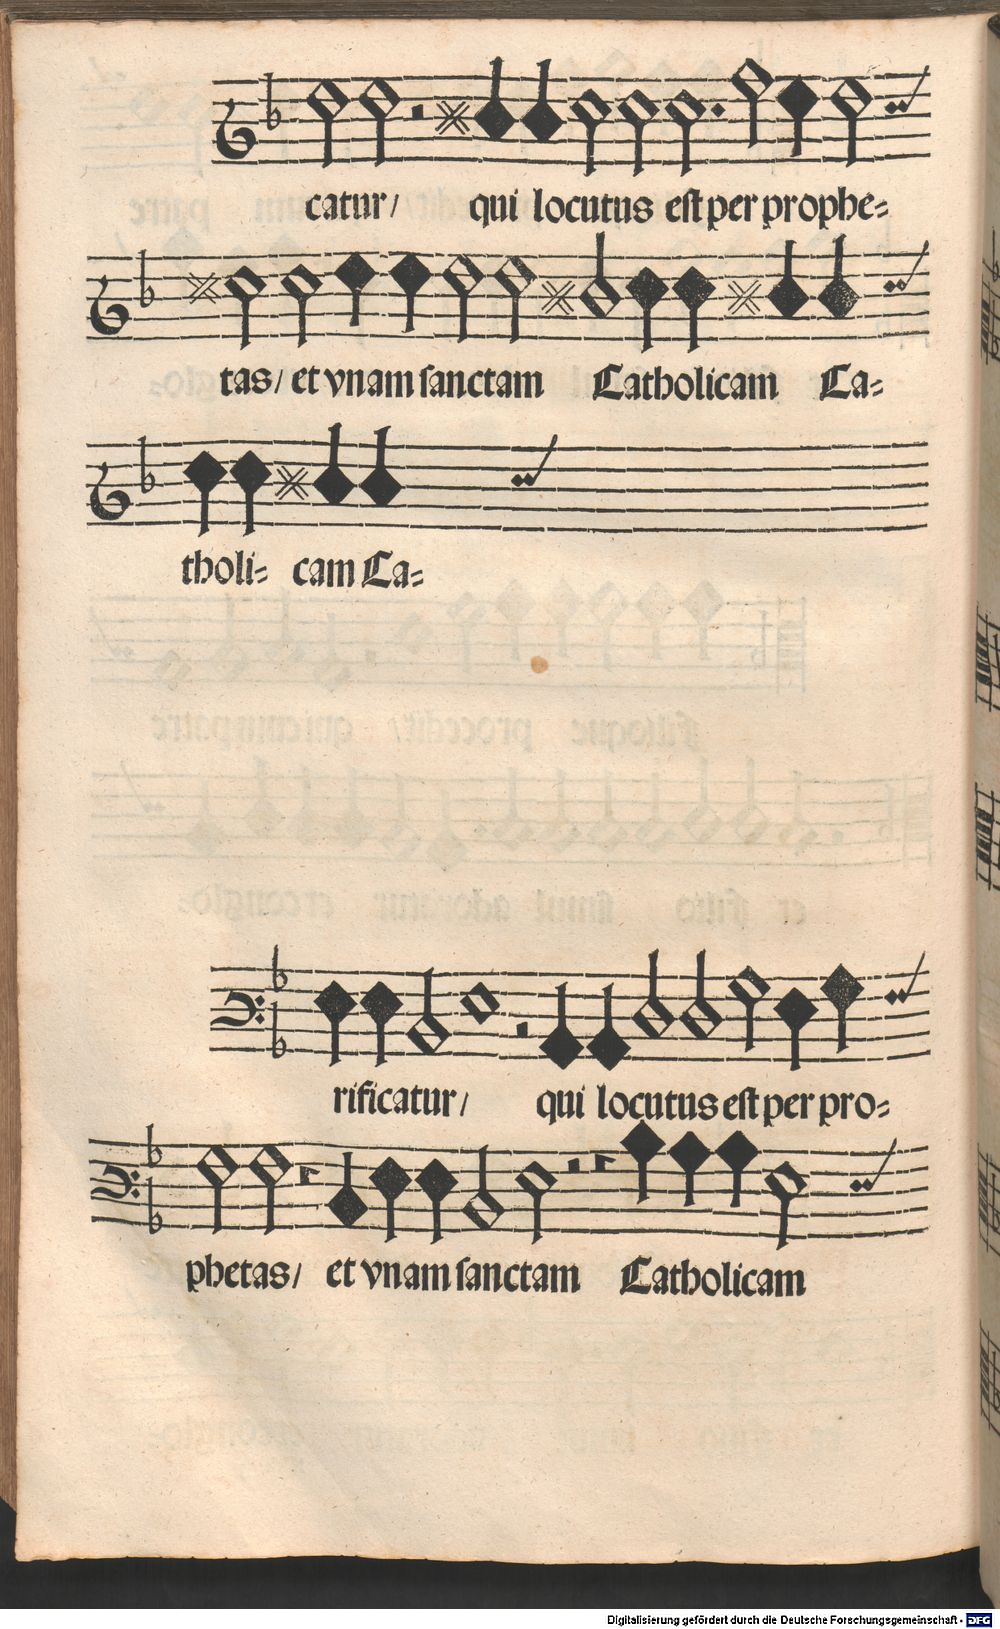 catur/ qui locutus est per prophe=
tas/ et vnam sanctam Catholicam Ca=
tholi= cam Ca=
rificatur/ qui locutus est per pro=
phetas/ et vnam sanctam Catholicam
Digitalisierung gefördert durch die Deutsche Forschungsgemeinschaft - DFG